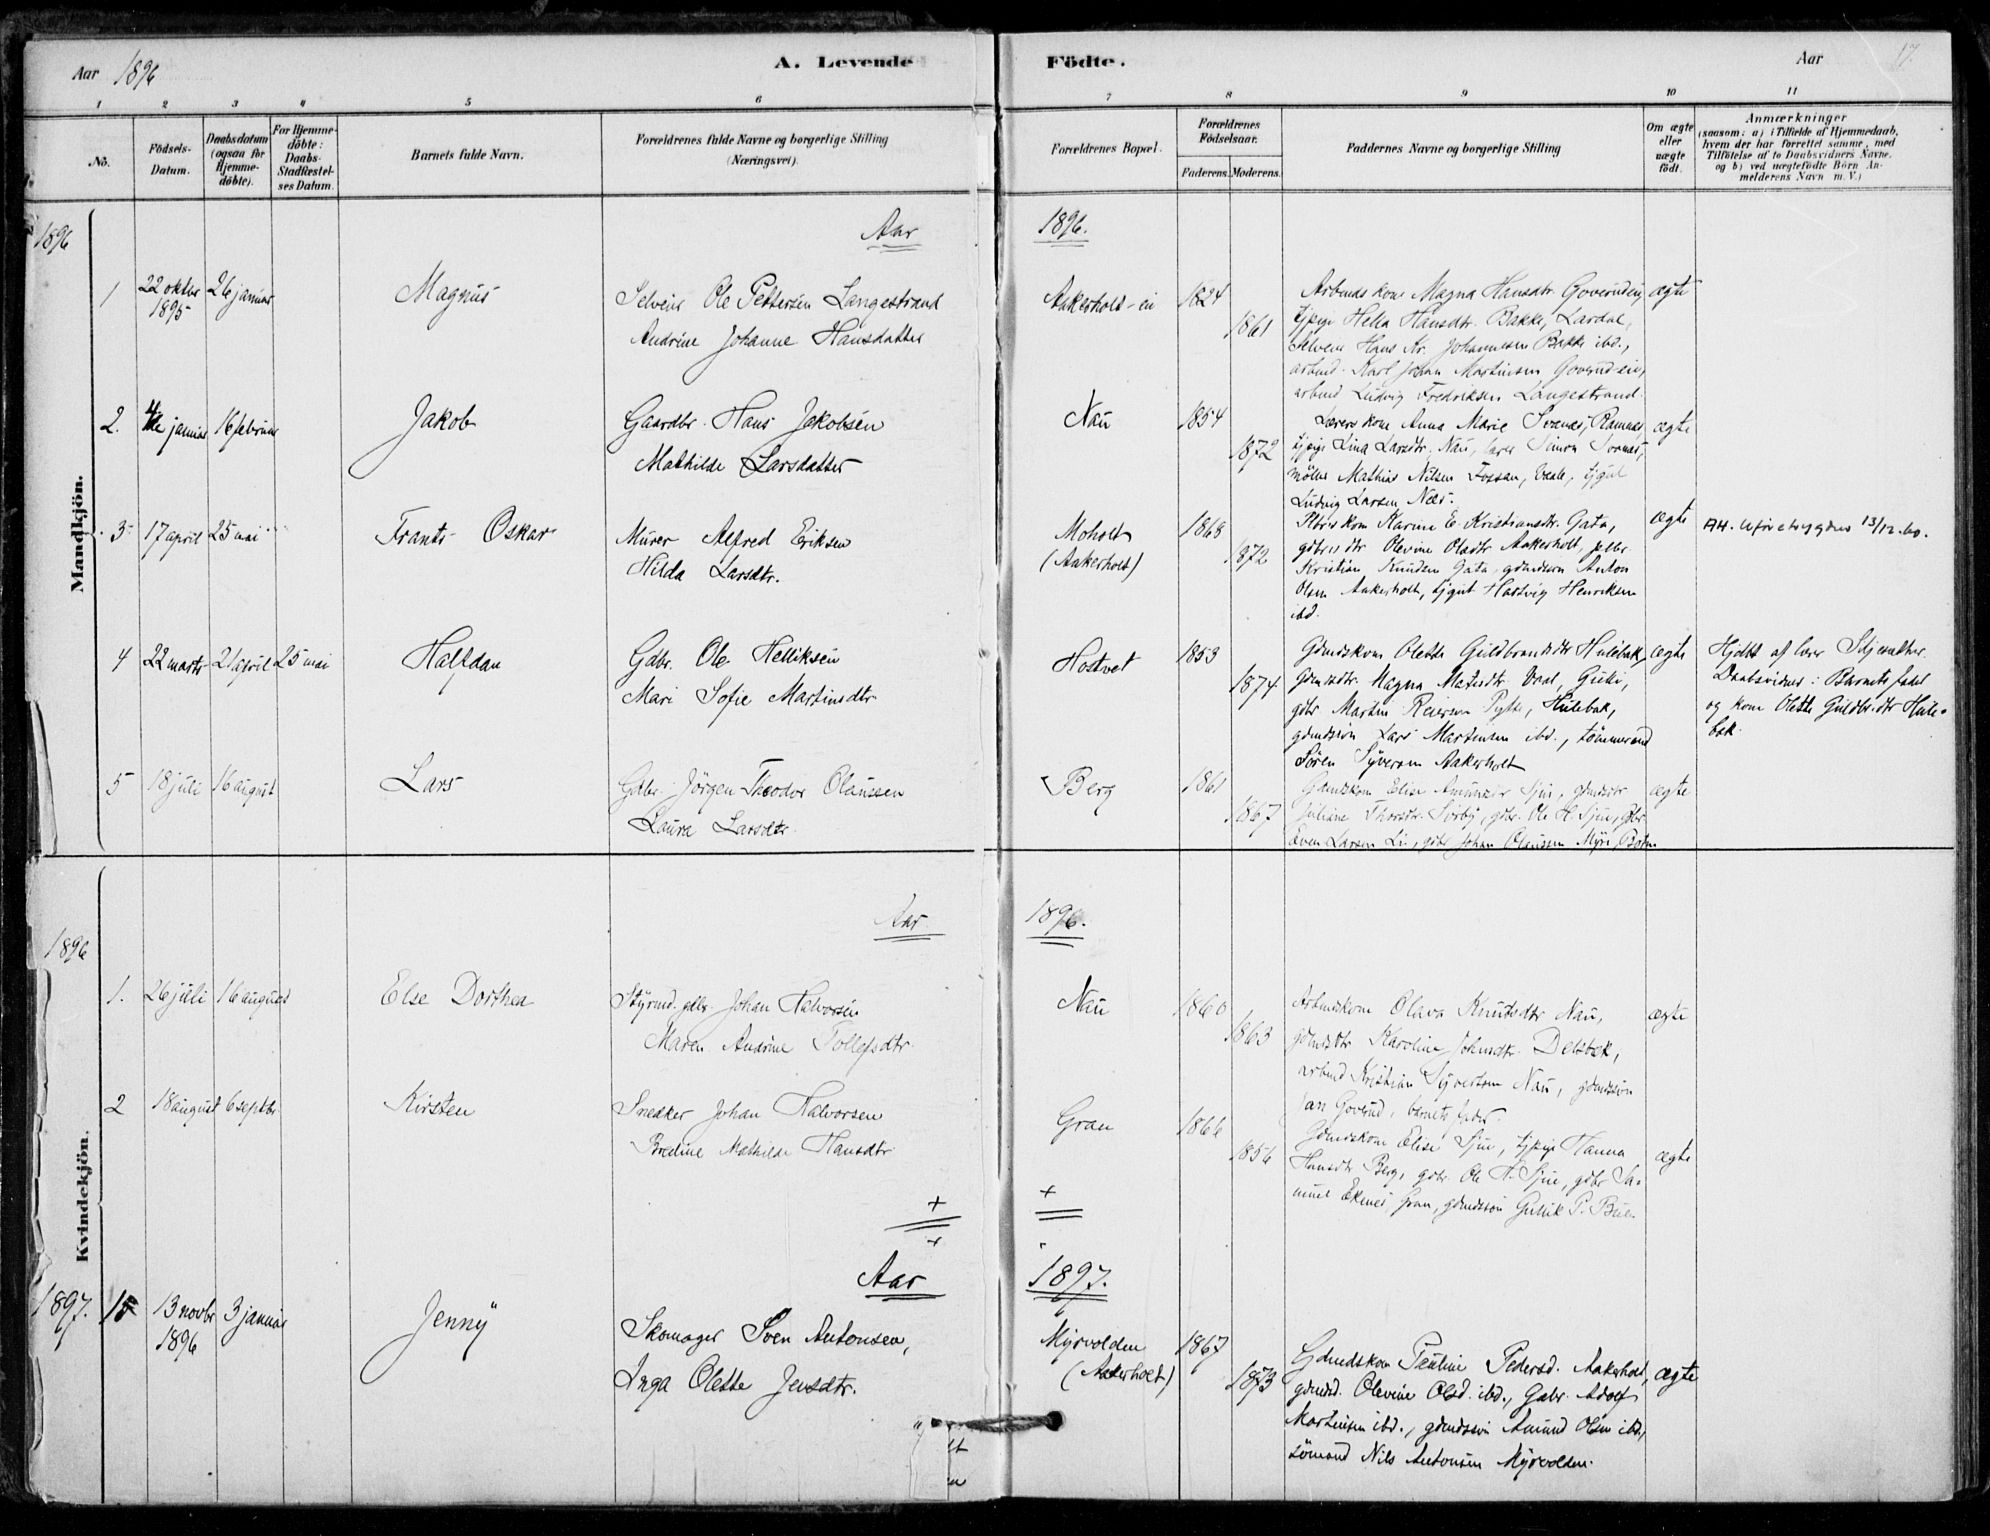 Aar 1896
A. Levende
Födte.
Aar
17.
1
2
3
4
5
6
7
8
9
10
11
No.
Födsels-
Datum.
Daabsdatum
(ogsaa for
Hjemme-
döbte).
For Hjemme-
döbte:
Daabs-
Stadfæstel-
ses Datum.
Barnets fulde Navn.
Forældrenes fulde Navne og borgerlige Stilling
(Næringsvei).
Forældrenes Bopæl.
Forældrenes
Födselsaar.
Faderens. Moderens.
Faddernes Navne og borgerlige Stilling
Om ægte
eller
uægte
födt.
Anmærkninger
(saasom: a) i Tilfælde af Hjemmedaab,
hvem der har forrettet samme, med
Tilföielse af to Daabsvidners Navne,
og b) ved uægtefödte Börn An-
melderens Navn m. V.)
Mandkjön.
1896
Aar
1896.
1
22 oktbr
1895
26 januar
Magnus
Selveier Ole Pettersen Langestrand
Andrine Johanne Hansdatter
Aakerholt-ei
1824
1861
Arbmds kone Magna Hansdtr. Goverudeie,
tjpige Hella Hansdtr. Bakke, Lardal,
Selveier Hans Kr. Johannesen Bakke ibd.,
arbmd. Karl Johan Martinsen Goverud-eie,
arbmd Ludvig Fredriksen Langestrand.
ægte
2.
4de januar
16 februar
Jakob
Gaardbr. Hans Jakobsen
Mathilde Larsdatter
Nau
1854
1872
Lærers kone Anna Marie Svenes, Ramnes
tjpige Lina Larsdtr. Nau, lærer Simon Svenes,
möller Mathias Nilsen Fossan, Vaale, tjgut
Ludvig Larsen Nau.
ægte
3
17 april
25 mai
Frants Oskar
Murer Alfred Eriksen
Hilda Larsdtr.
Moholt
(Aakerholt)
1868
1872
Pltbrs kone Karine E. Kristiansdtr. Gata,
gdbrs dtr Olevine Olsdtr Aakerholt, pltbr
Kristian Knudsen Gata, gdmdssön Anton
Olsen Aakerholt, tjgut Hartvig Henriksen
ibd.
ægte
AH. Uföretrygdes 13/12.60.
4
22 marts
21 april
25 mai
Halfdan
Gdbr. Ole Helliksen
Mari Sofie Martinsdtr
Hostvet
1853
1874
Gdmdskone Olette Guldbrandsdtr Hulebak,
gdmdsdtr. Magna Matisdtr. Vaal,
gdbr Martin Reiersen Hulebak,
gdmdssön Lars Martinsen ibd., tömmermd
Sören Syversen Aakerholt
ægte
Hjdbt af lærer
Daabsvidner: Barnets fader
og kone Olette Guldbr.dtr Hule-
bak.
5
18 juli
16 august
Lars
Gdbr. Jörgen Theodor Olaussen
Laura Larsdtr.
Berg
1861
1867
Gdmdskone Elise Amundsdtr Sjue, gdmdsdtr
Juliane Thorsdtr. Sörby, gdbr. Ole H. Sjue, gdbr
Even Larsen Li, gdbr Johan Olaussen Myre, Botne
ægte
Kvindekjön.
1896
Aar
1896.
1.
26 juli
16 august
Else Dorthea
Styrmd. gdbr. Johan Halvorsen
Maren Andrine Tollefsdtr.
Nau
1860
1863
Arbmdskone Olava Knutsdtr Nau,
gdmdsdtr Karoline Johnsdtr. Delebek,
arbmd Kristian Syvertsen Nau, gdmdssön
Jan Goverud, barnets fader.
ægte
2
18 august
6 septbr.
Kirsten
Snedker Johan Halvorsen
Bredine Mathilde Hansdtr
Gran
1866
1856
Gdmdskone Elise Sjue, tjpige Hanna
Hansdtr Berg, gdbr. Ole H. Sjue, gdbr Sa-
muel Ekenes, Gran, gdmdssön Gulik P. Buer
ægte
Aar
1897.
1897.
1
13 novbr
1896
3 januar
Jenny
Skomager Sven Antonsen,
Inga Olette Jensdtr.
Myrvolden
(Aakerholt)
1867
1873
Gdmdskone Pauline Pedersd. Aakerholt,
gdmdsd. Olevine Olsd. ibd., Gdbr. Adolf
Martinsen ibd., gdmdssön Amund Olsen ibd.,
sömand Nils Antonsen Myrvolden.
ægte